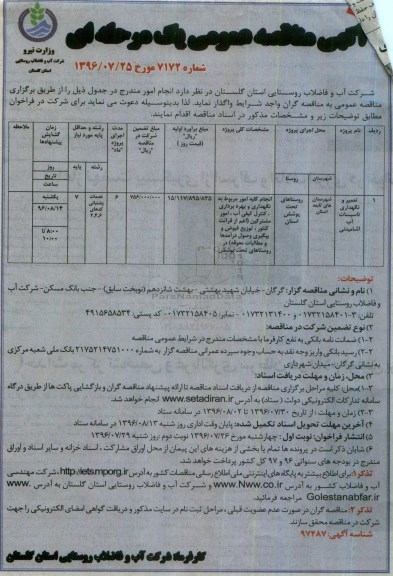 آگهی مناقصه عمومی یک مرحله ای
وزارت نیرو
شرکت آب و فاضلاب روستایی
استان گلستان
شماره ۷۱۷۲ مورخ ۱۳۹۶/۰۷/۲۵
شرکت آب و فاضلاب روستایی استان گلستان در نظر دارد انجام امور مندرج در جدول ذیل را از طریق برگزاری
مناقصه عمومی به مناقصه گران واجد شرایط واگذار نماید. لذا بدینوسیله دعوت می نماید برای شرکت در فراخوان
مطابق توضیحات زیر و مشخصات مذکور در اسناد مناقصه اقدام نمایند.
ردیف نام پروژه محل اجرای پروژه مشخصات کلی پروژه مبلغ برآورد اولیه "ریال" (قیمت روز) مبلغ تضمین شرکت در مناقصه "ریال" مدت اجرای پروژه "ماه" رشته و حداقل پایه مورد نیاز زمان گشایش پیشنهادها ملاحظه
شهرستان روستا رشته پایه روز تاریخ ساعت
۱ تعمیر و نگهداری تاسیسات آب آشامیدنی شهرستان های تابعه استان روستاهای تحت پوشش استان انجام کلیه امور مربوط به نگهداری و بهره برداری ، کنترل کیفی آب ، امور مشترکین (اعم از قرائت کنتور ، توزیع قبوض و پیگیری وصول درآمدها و مطالبات معوقه) در روستاهای تحت پوشش ۱۵/۱۱۷/۸۹۵/۸۳۵ ۷۵۶/۰۰۰/۰۰۰ ۶ خدمات پشتیبانی کدهای ۲،۴،۶ ۷ یکشنبه ۹۶/۰۸/۱۴ ۸:۰۰ تا ۱۰:۰۰
توضیحات:
۱) نام و نشانی مناقصه گزار: گرگان - خیابان شهید بهشتی - بهشت شانزدهم (نوبخت سابق) - جنب بانک مسکن - شرکت آب
و فاضلاب روستایی استان گلستان
تلفن: ۳-۰۱۷۳۲۱۵۸۴۰۱ و ۰۱۷۳۲۱۳۱۴۰۰ - نمابر: ۰۱۷۳۲۱۵۸۴۰۵ - کد پستی: ۴۹۱۵۶۵۸۵۳۴
۲) نوع تضمین شرکت در مناقصه:
۲-۱) ضمانت نامه بانکی به نفع کارفرما با مشخصات مندرج در شرایط عمومی مناقصه
۲-۲) رسید بانکی واریز وجه نقد به حساب وجوه سپرده عمرانی مناقصه گزار به شماره ۲۱۷۵۲۱۴۷۵۱۰۰۰ بانک ملی شعبه مرکزی
به نشانی گرگان - میدان شهرداری
۳) محل، زمان و مهلت دریافت اسناد:
۳-۱) محل: کلیه مراحل برگزاری مناقصه از دریافت اسناد مناقصه تا ارائه پیشنهاد مناقصه گران و بازگشایی پاکت ها از طریق درگاه
سامانه تدارکات الکترونیکی دولت (ستاد) به آدرس www.setadiran.ir انجام خواهد شد.
۳-۲) زمان و مهلت : از تاریخ ۱۳۹۶/۰۷/۳۰ تا ۱۳۹۶/۰۸/۰۲ در سامانه ستاد
۴) آخرین مهلت تحویل اسناد تکمیل شده: پایان وقت اداری روز شنبه ۱۳۹۶/۰۸/۱۳ در سامانه ستاد
۵) انتشار فراخوان: نوبت اول : چهارشنبه مورخ ۱۳۹۶/۰۷/۲۶ نوبت دوم روز شنبه ۱۳۹۶/۰۷/۲۹
۶) شایان ذکر است در پرونده ها تمام یا بخشی از هزینه های این پیمان از محل اوراق مشارکت ، اسناد خزانه و سایر اسناد و اوراق
مندرج در بودجه های سنواتی ۹۶ و ۹۷ کل کشور پرداخت خواهد شد.
تذکر۱: برای اطلاع بیشتر به پایگاه های اینترنتی ملی اطلاع رسانی مناقصات کشور به آدرس http://iets.mporg.ir، شرکت مهندسی
آب و فاضلاب کشور به آدرس www.Nww.co.ir و شرکت آب و فاضلاب روستایی استان گلستان به آدرس www.
Golestanabfar.ir مراجعه فرمائید.
تذکر ۲: مناقصه گران در صورت عدم عضویت قبلی ، مراحل ثبت نام در سایت مذکور و دریافت گواهی امضای الکترونیکی را جهت
شرکت در مناقصه محقق سازند.
شناسه آگهی: ۹۷۲۸۷
کارفرما: شرکت آب و فاضلاب روستایی استان گلستان